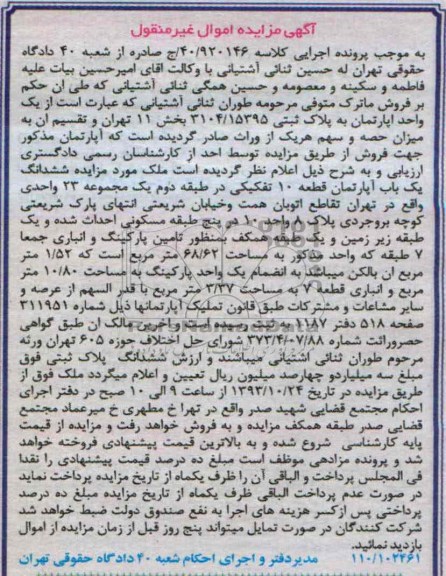 آگهی مزایده اموال غیرمنقول
به موجب پرونده اجرایی کلاسه ۴۰/۹۲۰۱۴۶/ج صادره از شعبه ۴۰ دادگاه
حقوقی تهران له حسین ثنائی آشتیانی با وکالت اقای امیرحسین بیات علیه
فاطمه و سکینه و معصومه و حسین همگی ثنائی آشتیانی که طی ان حکم
بر فروش ماترک متوفی مرحومه طوران ثنائی آشتیانی که عبارت است از یک
واحد اپارتمان به پلاک ثبتی ۳۱۰۴/۱۵۳۹۵ بخش ۱۱ تهران و تقسیم ان به
میزان حصه و سهم هریک از وراث صادر گردیده است که آپارتمان مذکور
جهت فروش از طریق مزایده توسط احد از کارشناسان رسمی دادگستری
ارزیابی و به شرح ذیل اعلام نظر گردیده است ملک مورد مزایده ششدانگ
یک باب آپارتمان قطعه ۱۰ تفکیکی در طبقه دوم یک مجموعه ۲۳ واحدی
واقع در تهران تقاطع اتوبان همت وخیابان شریعتی انتهای پارک شریعتی
کوچه بروجردی پلاک ۸ واحد ۱۰ در پنج طبقه مسکونی احداث شده و یک
طبقه زیر زمین و یک طبقه همکف بمنظور تامین پارکینگ و انباری جمعا
۷ طبقه که واحد مذکور به مساحت ۶۸/۶۲ متر مربع است که ۱/۵۲ متر
مربع ان بالکن میباشد به انضمام یک واحد پارکینگ به مساحت ۱۰/۸۰ متر
مربع و انباری قطعه ۷ به مساحت ۳/۳۷ متر مربع با قدر السهم از عرصه و
سایر مشاعات و مشترکات طبق قانون تملیک آپارتمانها ذیل شماره ۳۱۱۹۵۱
صفحه ۵۱۸ دفتر ۱۱۸۷ به ثبت رسیده است واخرین مالک ان طبق گواهی
حصروراثت شماره ۳۷۳/۴/۰۷/۸۸ شورای حل اختلاف حوزه ۶۰۵ تهران ورثه
مرحوم طوران ثنائی اشتیانی میباشند و ارزش ششدانگ پلاک ثبتی فوق
مبلغ سه میلیاردو چهارصد میلیون ریال تعیین و اعلام میگردد ملک فوق از
طریق مزایده در تاریخ ۱۳۹۳/۱۰/۲۴ از ساعت ۹ الی ۱۰ صبح در دفتر اجرای
احکام مجتمع قضایی شهید صدر واقع در تهرا خ مطهری خ میرعماد مجتمع
قضایی صدر طبقه همکف مزایده و به فروش خواهد رفت و مزایده از قیمت
پایه کارشناسی شروع شده و به بالاترین قیمت پیشنهادی فروخته خواهد
شد و پرونده مزادهی موظف است مبلغ ده درصد قیمت پیشنهادی را نقدا
فی المجلس پرداخت و الباقی آن را ظرف یکماه از تاریخ مزایده پرداخت نماید
در صورت عدم پرداخت الباقی ظرف یکماه از تاریخ مزایده مبلغ ده درصد
پرداختی پس ازکسر هزینه های اجرا به نفع صندوق دولت ضبط خواهد شد
شرکت کنندگان در صورت تمایل میتواند پنج روز قبل از زمان مزایده از اموال
بازدید نمائید.
۱۱۰/۱۰۲۴۶۱ مدیردفتر و اجرای احکام شعبه ۴۰ دادگاه حقوقی تهران